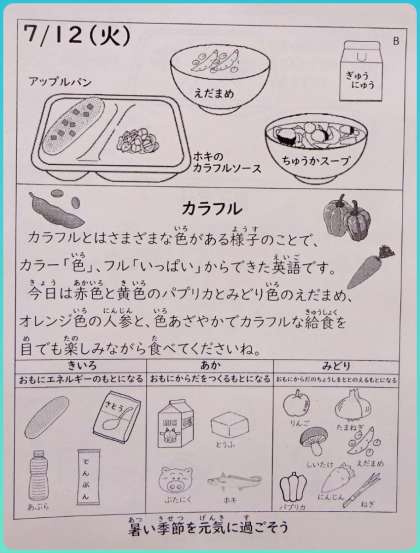 7/12(火)
B
アップルパン
えだまめ
ぎゅう
にゅう
ホキの
カラフルソース
ちゅうかスープ
カラフル
カラフルとはさまざまな色がある様子のことで、
カラー「色」、フル「いっぱい」からできた英語です。
今日は赤色と黄色のパプリカとみどり色のえだまめ、
オレンジ色の人参と、色あざやかでカラフルな給食を
目でも楽しみながら食べてくださいね。
きいろ
あか
みどり
おもにエネルギーのもとになる
おもにからだをつくるもとになる
おもにからだのちょうしをととのえるもとになる
さとう
とうふ
りんご
たまねぎ
しいたけ
えだまめ
あぶら
でんぷん
ぶたにく
ホキ
パプリカ
にんじん
ねぎ
暑い季節を元気に過ごそう